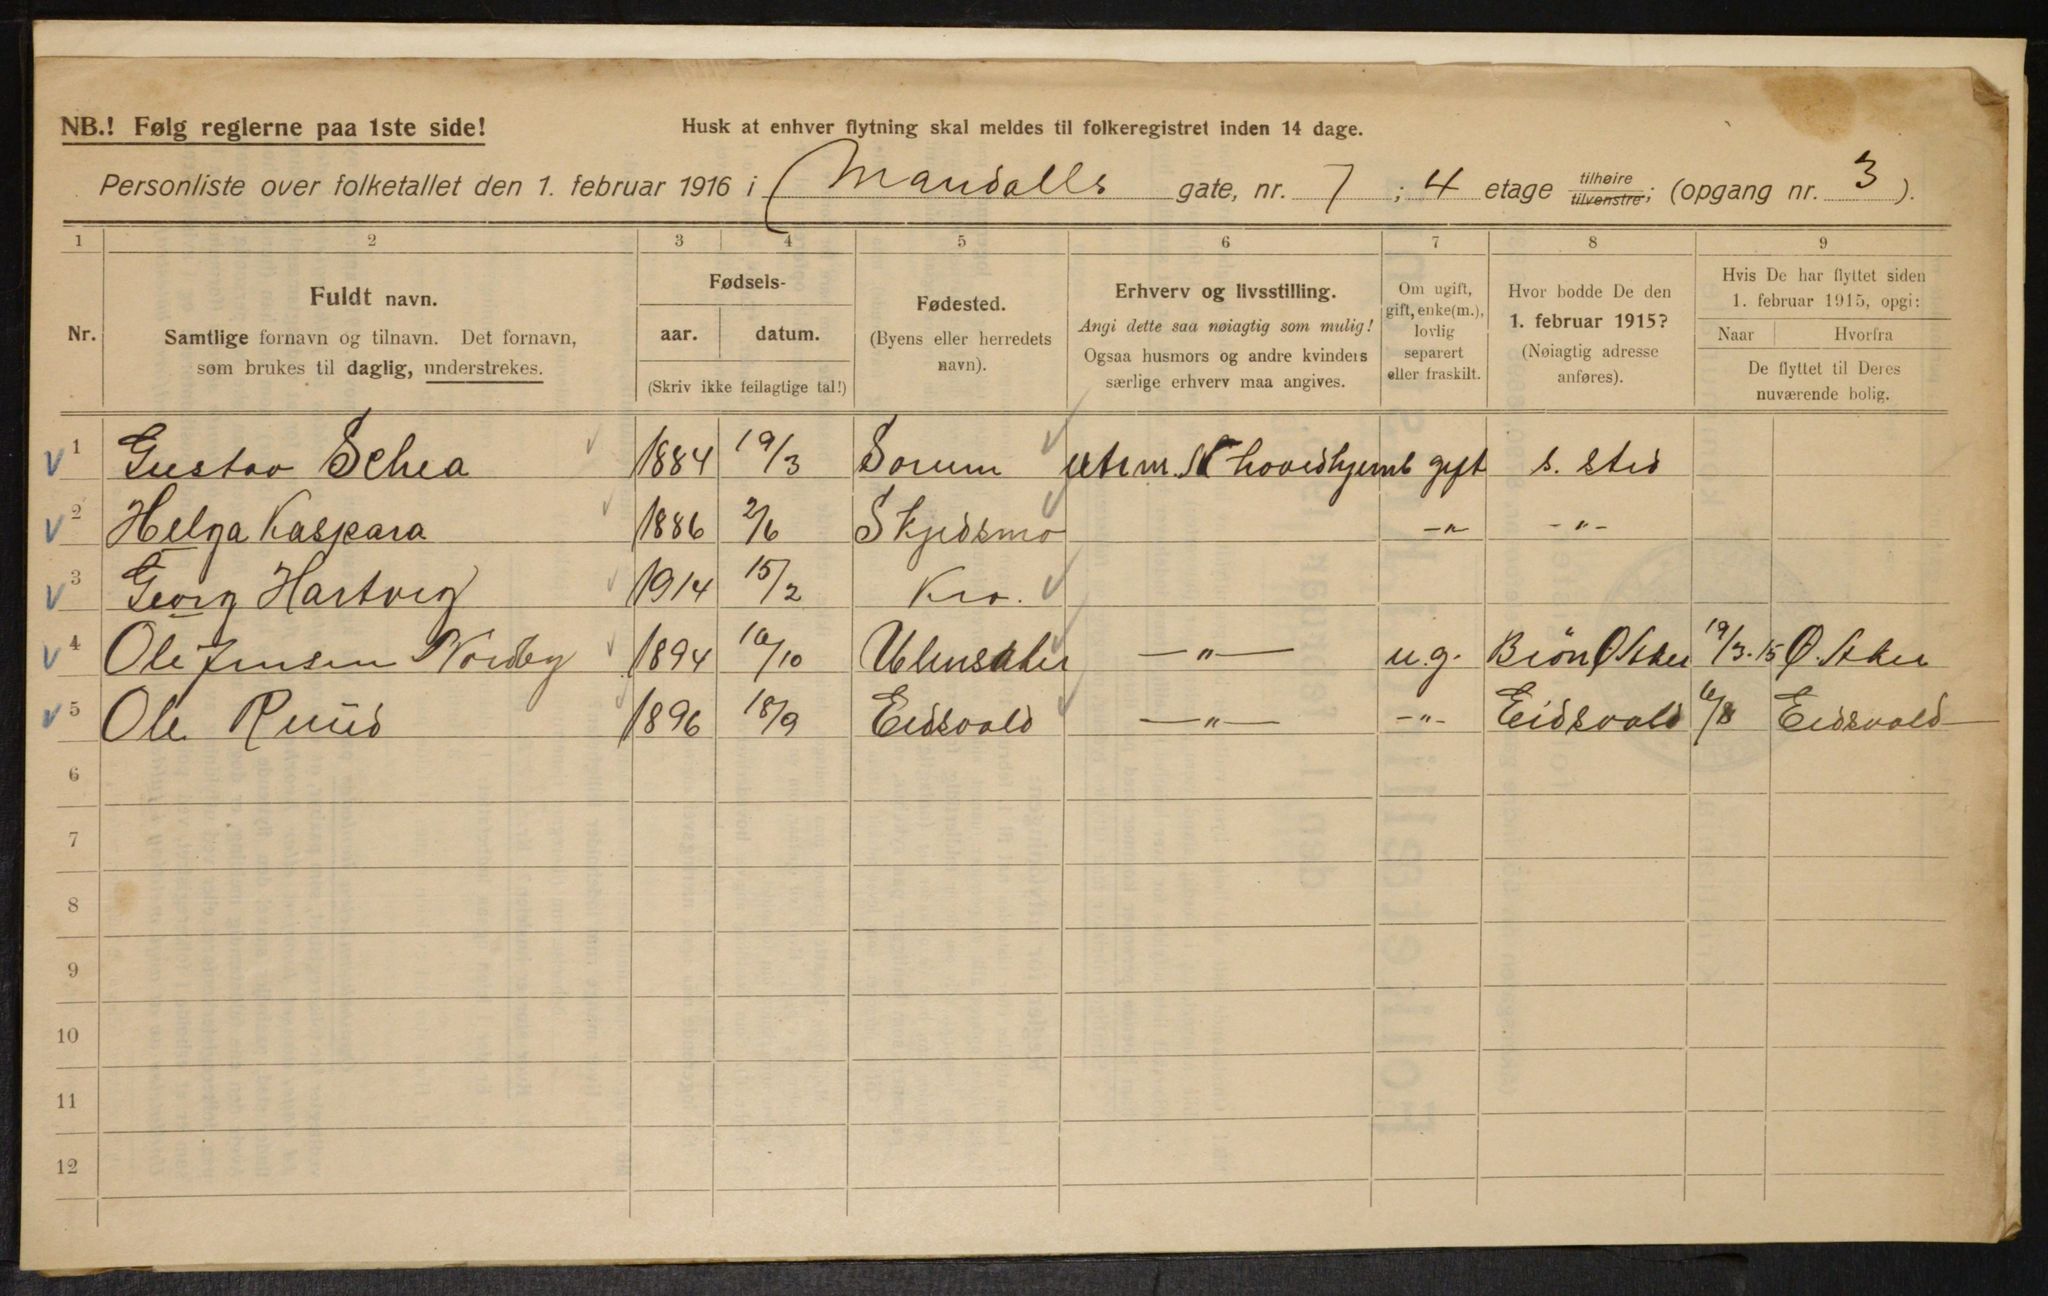 NB.! Følg reglerne paa 1ste side!
Husk at enhver flytning skal meldes til folkeregistret inden 14 dage.
Personliste over folketallet den 1. februar 1916 i Mandalls gate, nr. 7 ; 4 etage tilhøire tilvenstre; (opgang nr. 3 ).
1 2 3 4 5 6 7 8 9
Nr.
Fuldt navn.
Samtlige fornavn og tilnavn. Det fornavn,
som brukes til daglig, understrekes.
Fødsels-
aar. datum.
(Skriv ikke feilagtige tal!)
Fødested.
(Byens eller herredets
navn).
Erhverv og livsstilling.
Angi dette saa nøiagtig som mulig!
Ogsaa husmors og andre kvinders
særlige erhverv maa angives.
Om ugift,
gift, enke(m.),
lovlig
separert
eller fraskilt.
Hvor bodde De den
1. februar 1915?
(Nøiagtig adresse
anføres).
Hvis De har flyttet siden
1. februar 1915, opgi:
Naar Hvorfra
De flyttet til Deres
nuværende bolig.
1 Gustav Schea 1884 19/3 Sorum gift s. sted
2 Helga Kaspara 1886 2/6 Skjedsmo -"- -"-
3 Georg Hartvig 1914 15/2 Kra.
4 Ole Jensen Nordby 1894 10 Ulensaker -"- u.g. 19/3.15
5 Ole Ruud 1896 18/9 Eidsvold -"- -"- Eidsvold 6/8 Eidsvold
6
7
8
9
10
11
12